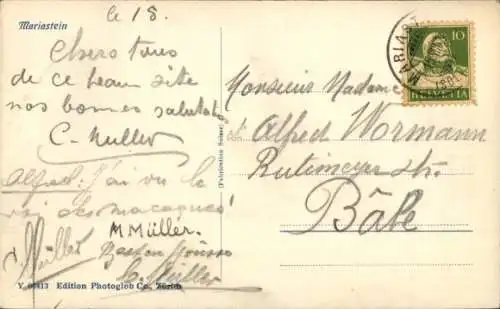 le 18.
Mariastein
Chers tous
de ce beau site
nos bonnes salutat.
C. Muller
Alfred: J'ai vu le
roi des macaques!
M Müller.
Müller
C. Müller
V 6613 Edition Photoglob Co., Zürich
(Fabrication Suisse)
MARIAST
10
HELVETIA
Monsieur Madame
et Alfred Wormann
Rutimeyer str.
Bâle